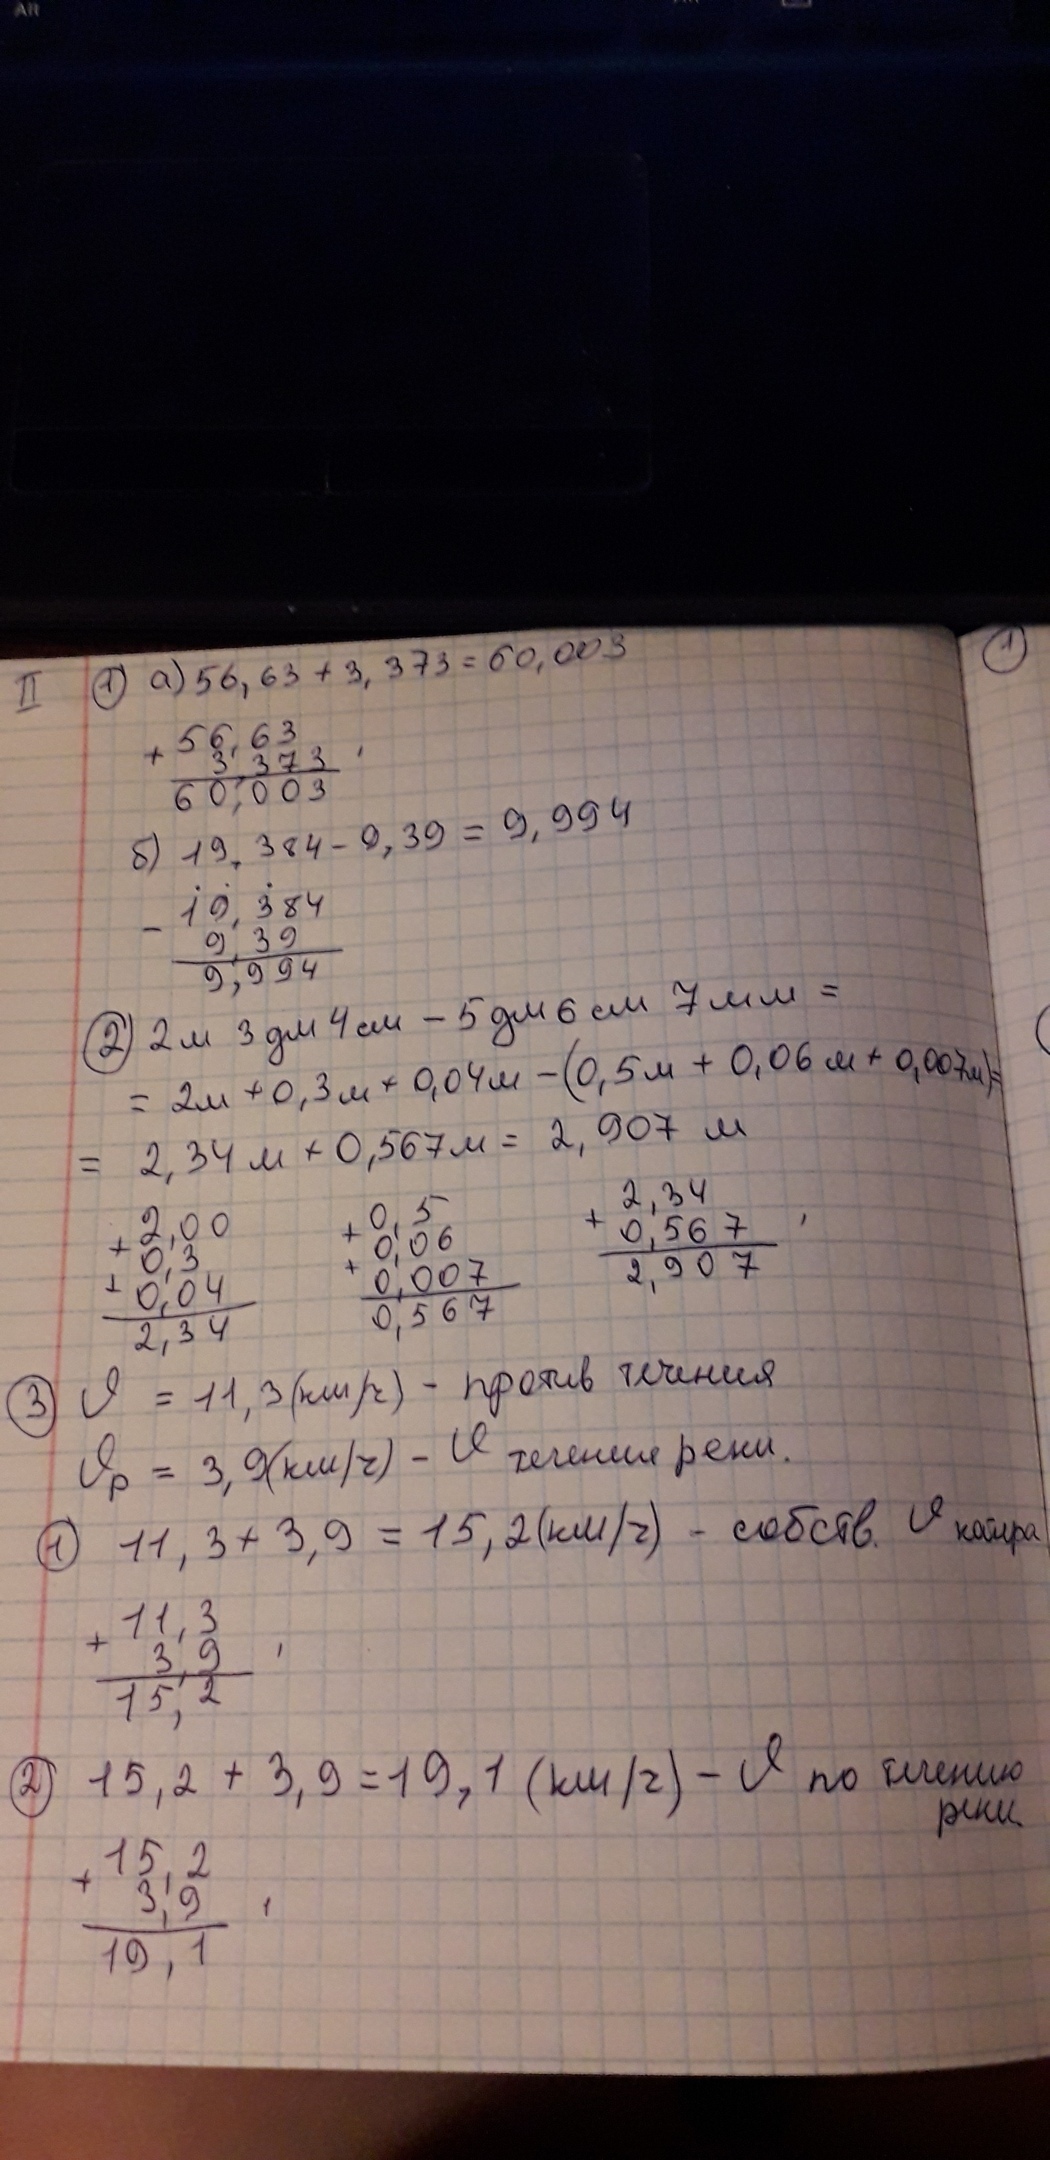 AR
II ① а) 56,63 + 3,373 = 60,003
+ 56,63
3,373
60,003
б) 19,384 - 9,39 = 9,994
- 19,384
9,39
9,994
② 2м 3дм 4см - 5дм 6см 7мм =
= 2м + 0,3м + 0,04м - (0,5м + 0,06м + 0,007м) =
= 2,34м + 0,567м = 2,907 м
+ 2,00
0,3
+ 0,04
2,34
+ 0,5
0,06
+ 0,007
0,567
+ 2,34
0,567
2,907
③ υ = 11,3(км/ч) - против течения
υр = 3,9(км/ч) - υ течения реки.
① 11,3 + 3,9 = 15,2(км/ч) - собств. υ катера
+ 11,3
3,9
15,2
② 15,2 + 3,9 = 19,1 (км/ч) - υ по течению
реки.
+ 15,2
3,9
19,1
①